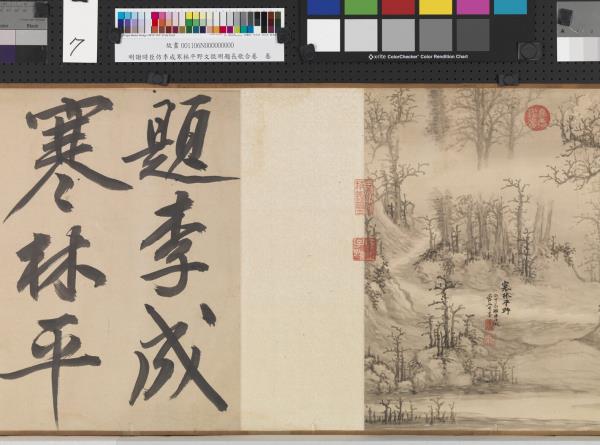 Black
7
故畫 001106N000000000
明謝時臣仿李成寒林平野文徵明題長歌合卷 卷
x-rite ColorChecker Color Rendition Chart
題李成
寒林平
寒林平野